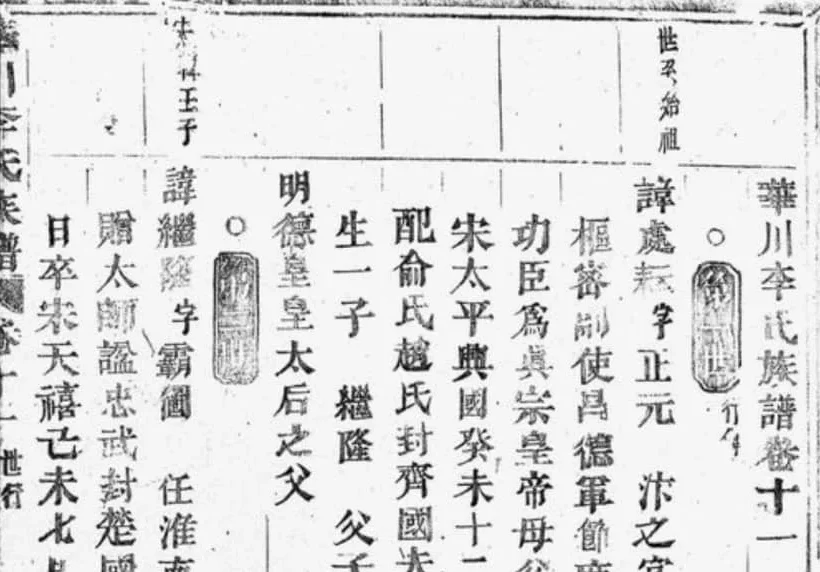 華川李氏族譜卷十一
世系始祖
諱處耘字正元　汴之
樞密副使昌德軍節
功臣爲真宗皇帝母
宋太平興國癸未十二
配俞氏趙氏封齊國
生一子　繼隆　父子
明德皇皇太后之父
壬子
諱繼隆字霸圖　任淮
贈太師諡忠武封楚國
日卒宋天禧己未七
川李氏族譜　卷十一　世行